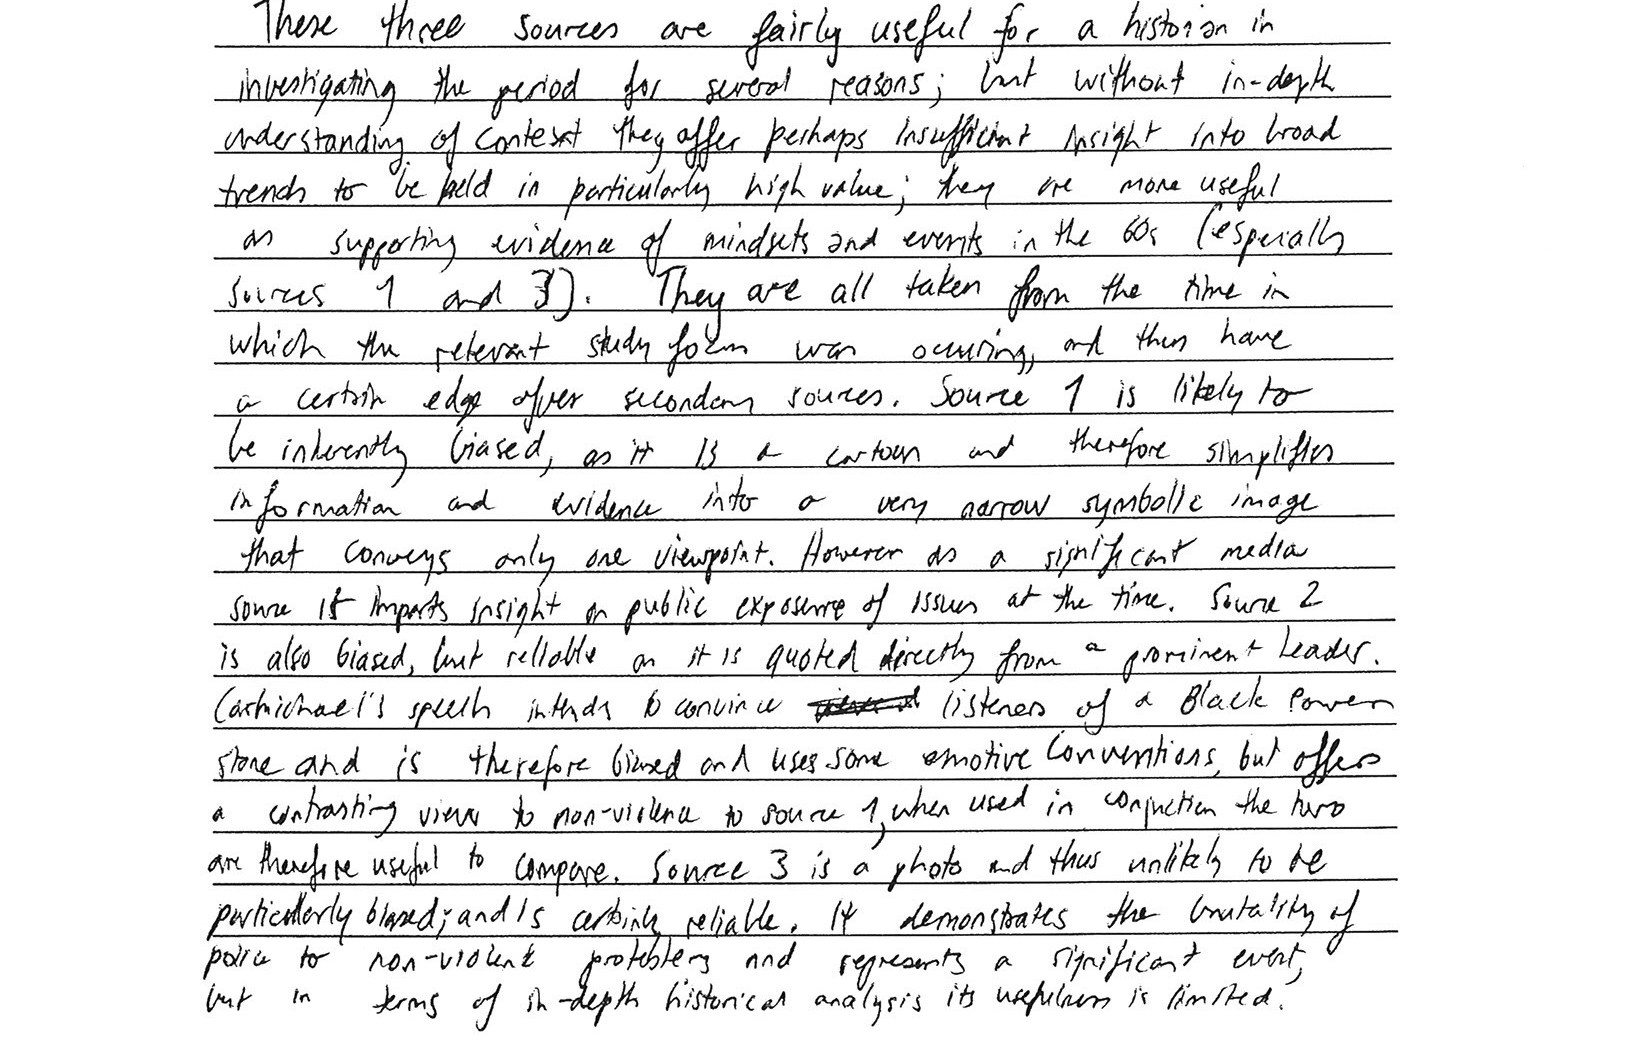 These three sources are fairly useful for a historian in
investigating the period for several reasons; but without in-depth
understanding of context they offer perhaps insufficient insight into broad
trends to be held in particularly high value; they are more useful
as supporting evidence of mindsets and events in the 60s (especially
sources 1 and 3). They are all taken from the time in
which the relevant study focus was occuring, and thus have
a certain edge over secondary sources. Source 1 is likely to
be inherently biased, as it is a cartoon and therefore simplifies
information and evidence into a very narrow symbolic image
that conveys only one viewpoint. However as a significant media
source it imparts insight on public exposure of issues at the time. Source 2
is also biased, but reliable as it is quoted directly from a prominent leader.
Carmichael's speech intends to convince listeners of a Black Power
stone and is therefore biased and uses some emotive conventions, but offers
a contrasting view to non-violence to source 1, when used in conjuction the two
are therefore useful to compare. Source 3 is a photo and thus unlikely to be
particularly biased; and is certainly reliable. It demonstrates the brutality of
police to non-violent protesters and represents a significant event,
but in terms of in-depth historical analysis its usefulness is limited.